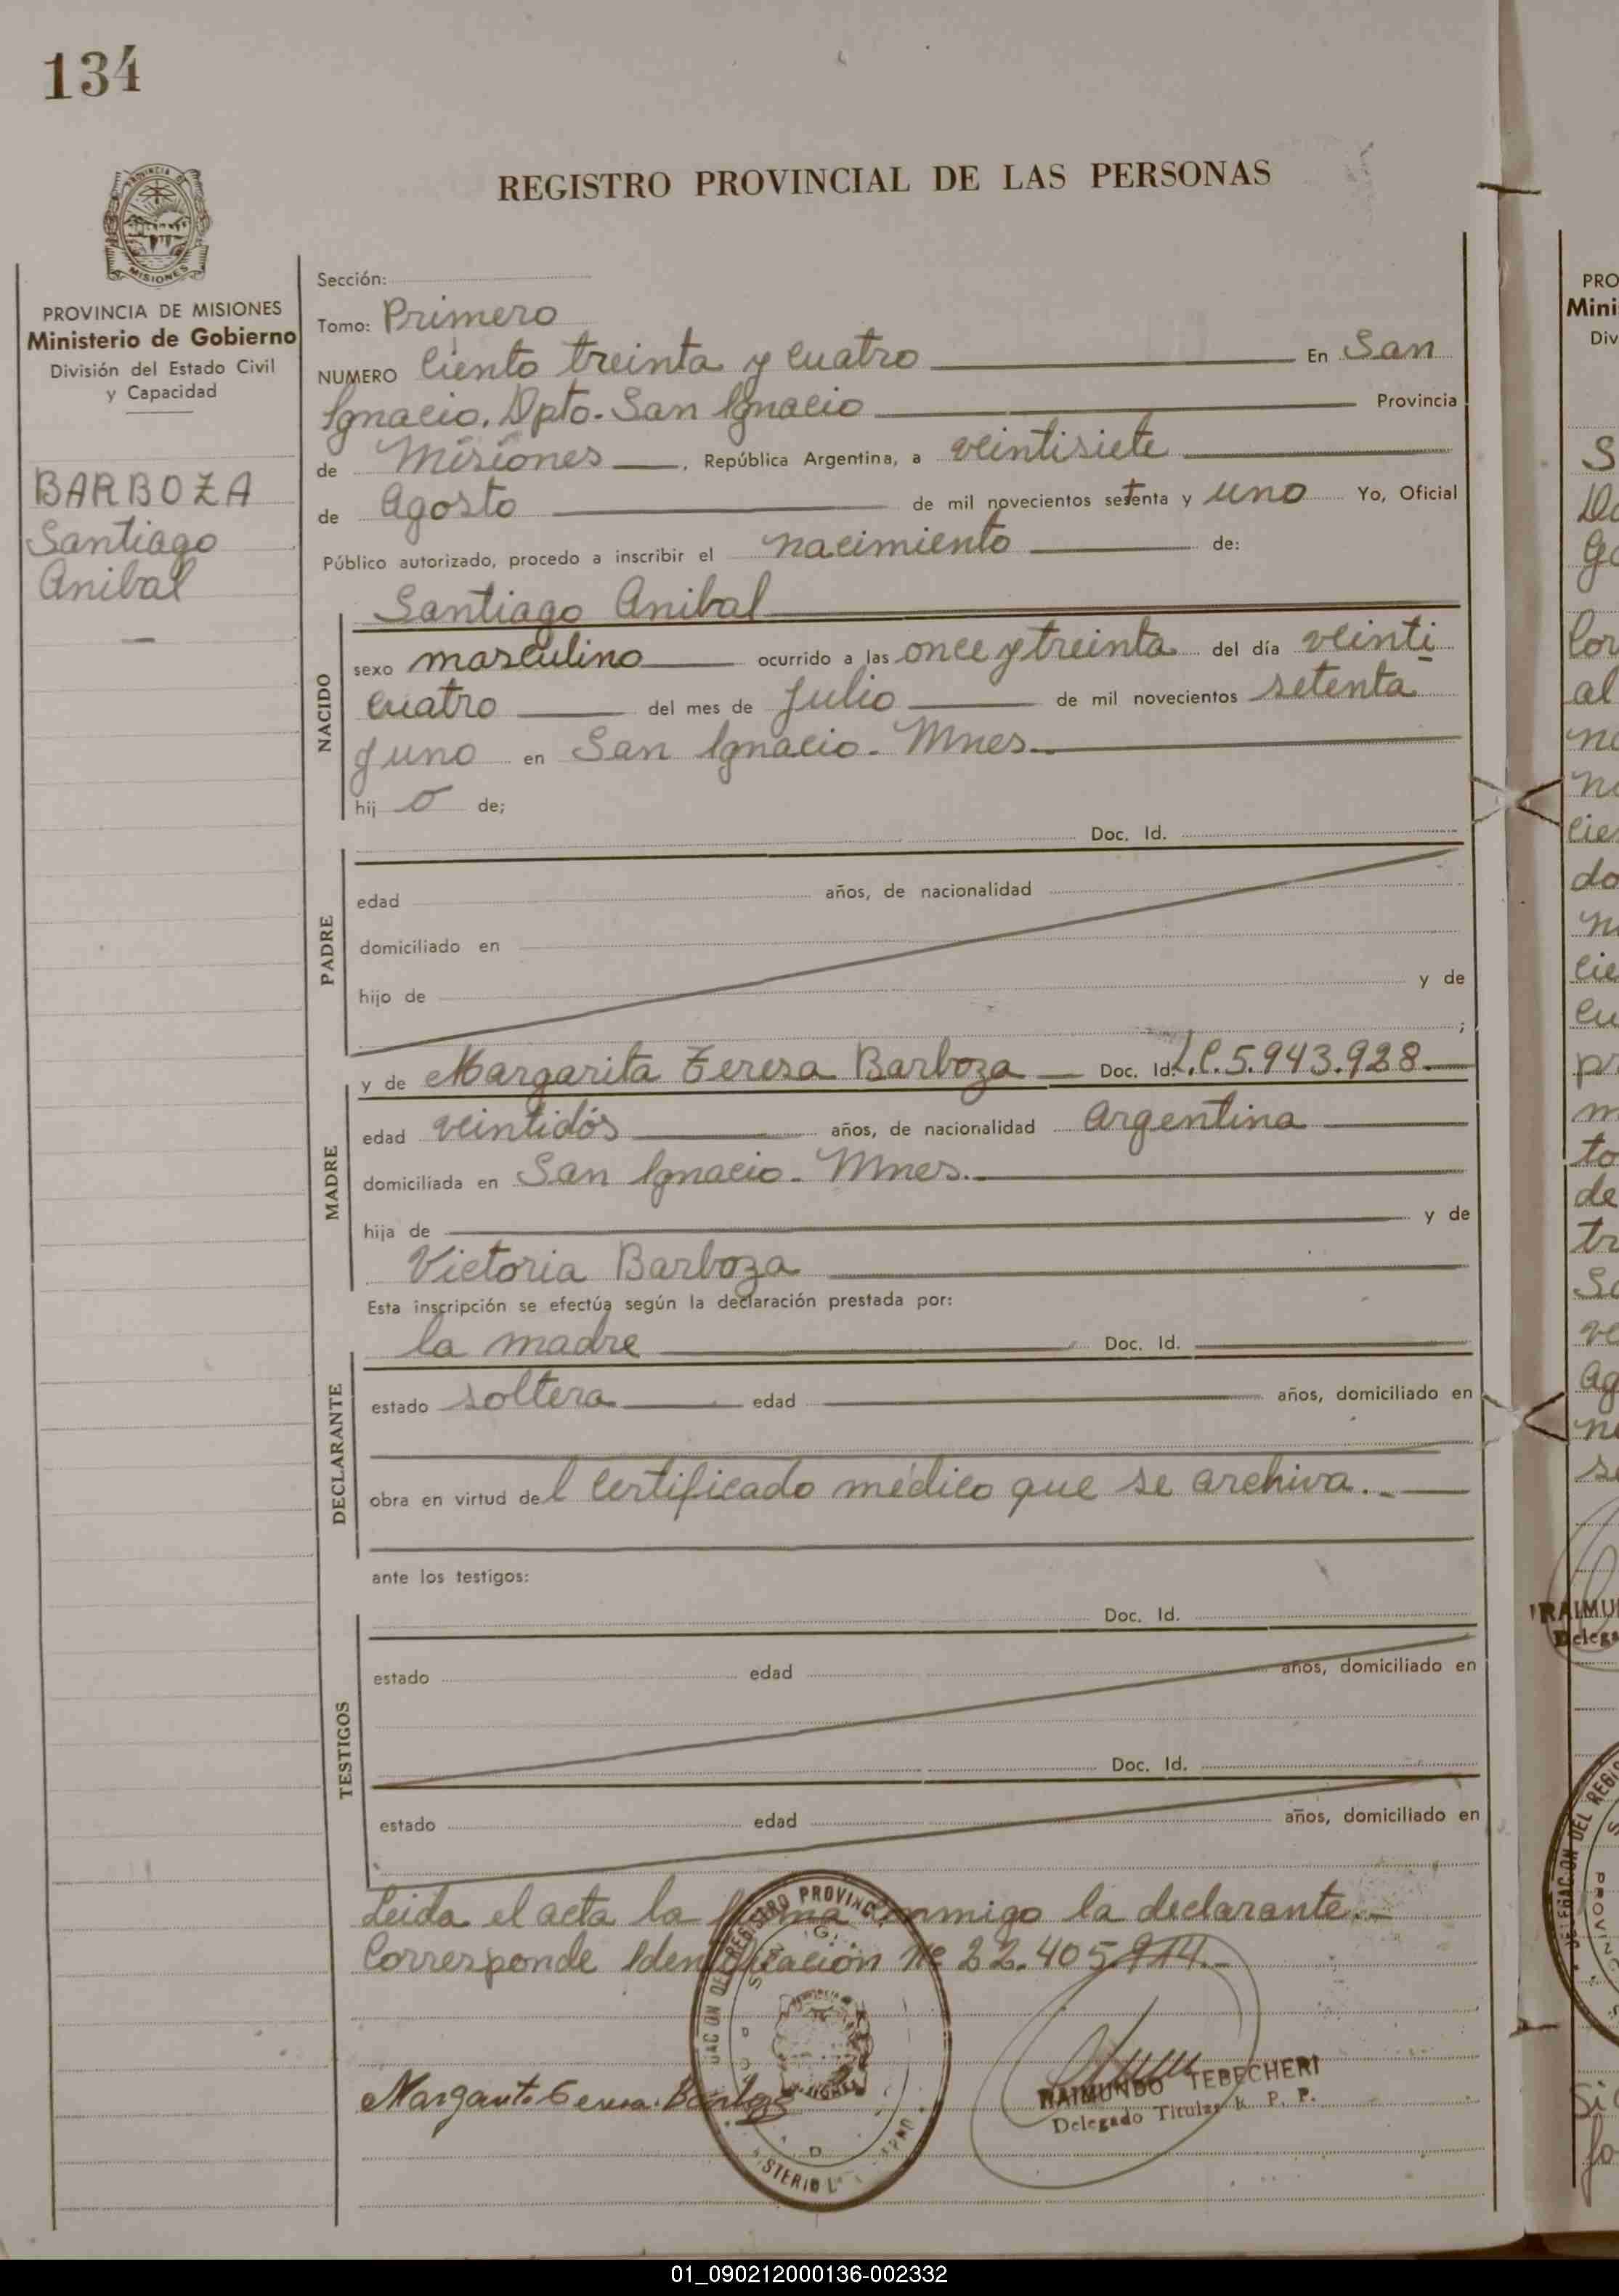 134
PROVINCIA DE
MISIONES
REGISTRO PROVINCIAL DE LAS PERSONAS
PROVINCIA DE MISIONES
Ministerio de Gobierno
División del Estado Civil
y Capacidad
BARBOZA
Santiago
Anibal
Sección:
Tomo: Primero
NUMERO Ciento treinta y cuatro En San
Ignacio. Dpto. San Ignacio Provincia
de Misiones , República Argentina, a veintisiete
de Agosto de mil novecientos setenta y uno Yo, Oficial
Público autorizado, procedo a inscribir el nacimiento de:
Santiago Anibal
NACIDO
sexo masculino ocurrido a las once y treinta del día veinti
cuatro del mes de Julio de mil novecientos setenta
y uno en San Ignacio. Mnes.
hij o de;
Doc. Id.
PADRE
edad años, de nacionalidad
domiciliado en
hijo de y de
;
y de Margarita Teresa Barboza Doc. Id. L.C. 5.943.928.
MADRE
edad veintidós años, de nacionalidad Argentina
domiciliada en San Ignacio. Mnes.
hija de y de
Victoria Barboza
Esta inscripción se efectúa según la declaración prestada por:
la madre Doc. Id.
DECLARANTE
estado soltera edad años, domiciliado en
obra en virtud del Certificado médico que se archiva.
ante los testigos:
Doc. Id.
TESTIGOS
estado edad años, domiciliado en
Doc. Id.
estado edad años, domiciliado en
Leida el acta la firma conmigo la declarante.
Corresponde Identificación Nº 22.405.914.
RAIMUNDO TEBECHERI
Delegado Titular R. P. P.
01_090212000136-002332